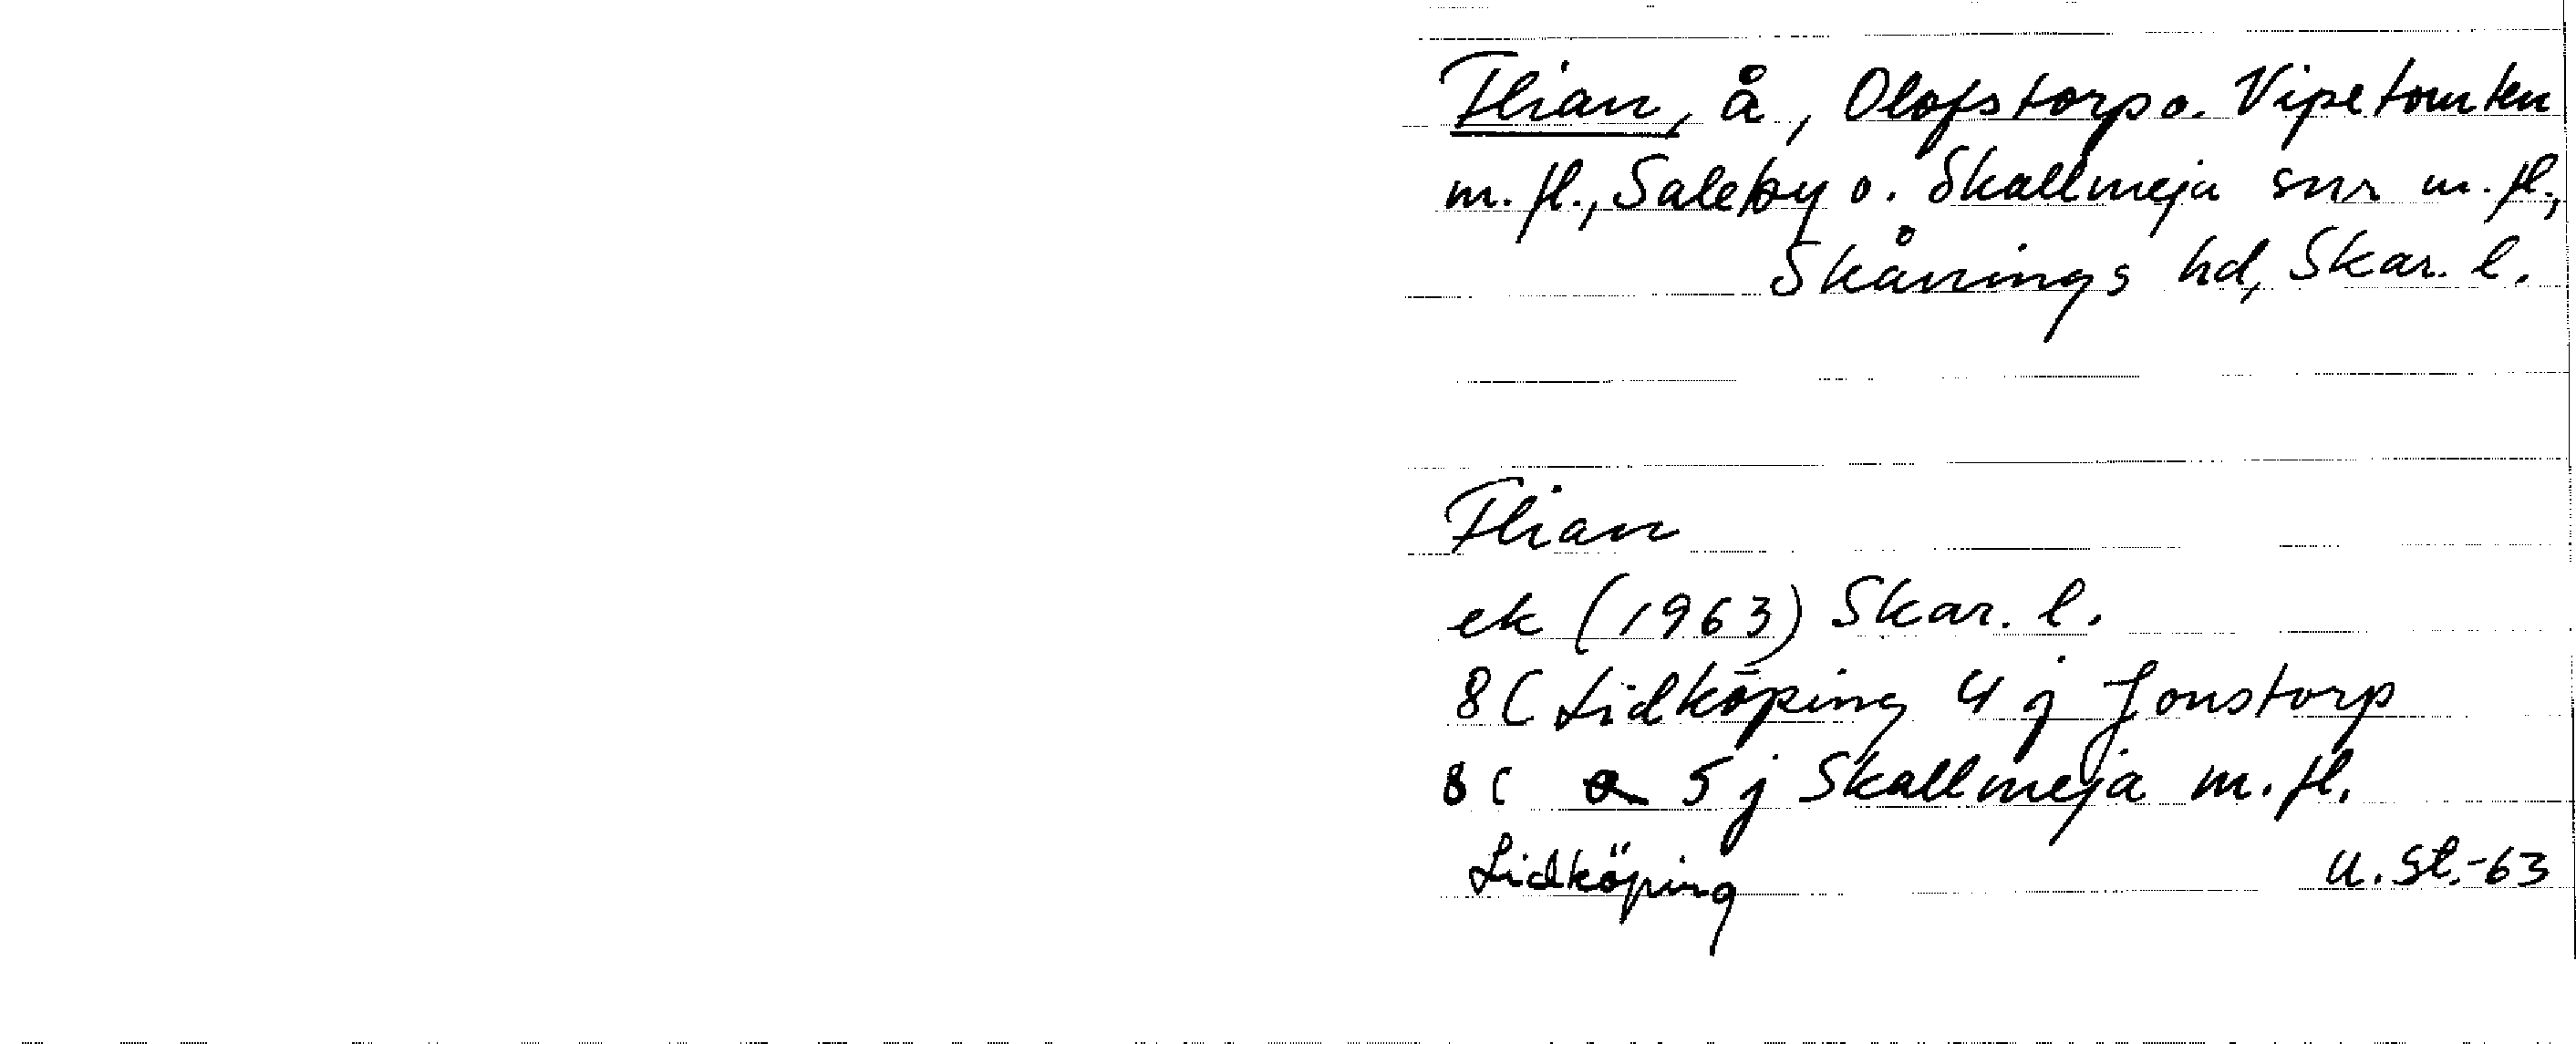 Flian, å, Olofstorp o. Vipetomten
m. fl., Saleby o. Skallmeja snr m. fl.,
Skånings hd, Skar. l.
Flian
ek (1963) Skar. l.
8C Lidköping 4 j Jonstorp
8C 5 j Skallmeja m. fl.
Lidköping u. st.-63